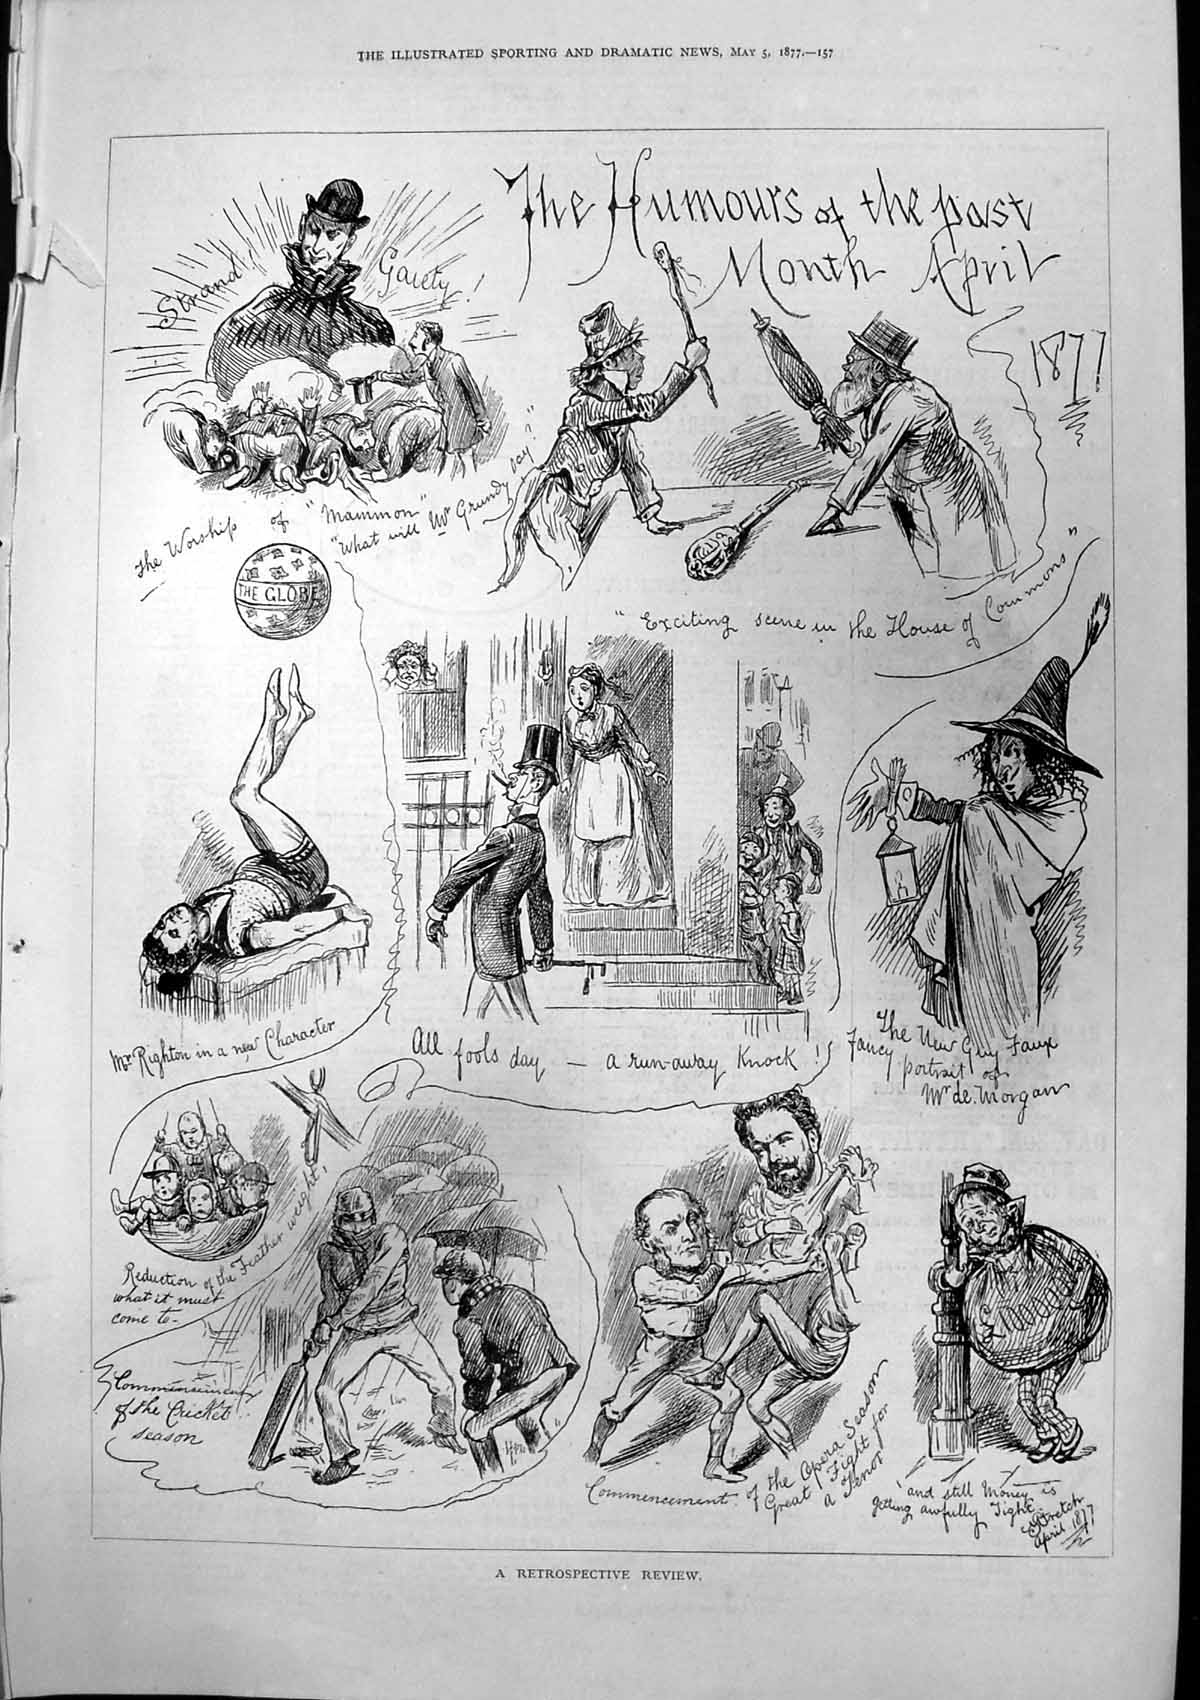 THE ILLUSTRATED SPORTING AND DRAMATIC NEWS, MAY 5, 1877.—157
The Humours of the past
Month April
1877
Strand!
Gaiety!
MAMMON
The Worship of "Mammon"
"What will Mrs Grundy say?"
THE GLOBE
"Exciting scene in the House of Commons"
Mr Righton in a new Character
All fools day — a run-away Knock!
The New Guy Faux
Fancy portrait of
Mr de Morgan
Reduction of the Feather weight!
what it must
come to-
Commencement
of the Cricket
season
Commencement of the Opera Season
Great Fight for
a Tenor
"and still Money is
getting awfully Tight
Stretch
April 1877
A RETROSPECTIVE REVIEW.